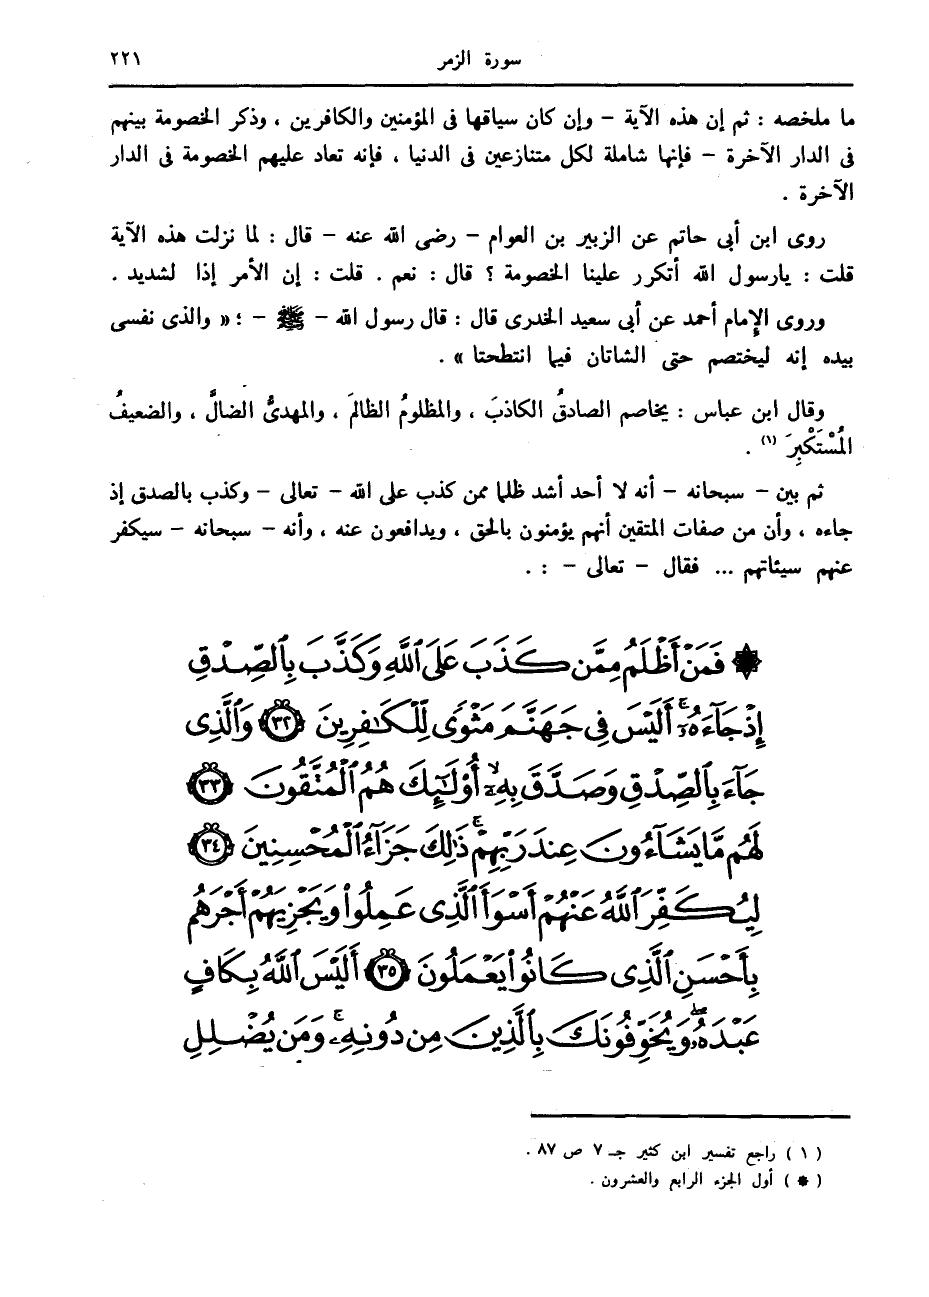 سورة الزمر ٢٢١
ما ملخصه : ثم إن هذه الآية – وإن كان سياقها فى المؤمنين والكافرين ، وذكر الخصومة بينهم
فى الدار الآخرة – فإنها شاملة لكل متنازعين فى الدنيا ، فإنه تعاد عليهم الخصومة فى الدار
الآخرة .
روى ابن أبى حاتم عن الزبير بن العوام – رضى الله عنه – قال : لما نزلت هذه الآية
قلت : يارسول الله أتكرر علينا الخصومة ؟ قال : نعم . قلت : إن الأمر إذا لشديد .
وروى الإمام أحمد عن أبى سعيد الخدرى قال : قال رسول الله – ﷺ – ؛ « والذى نفسى
بيده إنه ليختصم حتى الشاتان فيما انتطحتا » .
وقال ابن عباس : يخاصم الصادقُ الكاذبَ ، والمظلومُ الظالمَ ، والمهدىُّ الضالَّ ، والضعيفُ
المُسْتَكْبِرَ (١) .
ثم بين – سبحانه – أنه لا أحد أشد ظلما ممن كذب على الله – تعالى – وكذب بالصدق إذ
جاءه ، وأن من صفات المتقين أنهم يؤمنون بالحق ، ويدافعون عنه ، وأنه – سبحانه – سيكفر
عنهم سيئاتهم ... فقال – تعالى – : .
۞ فَمَنْ أَظْلَمُ مِمَّن كَذَبَ عَلَى ٱللَّهِ وَكَذَّبَ بِٱلصِّدْقِ
إِذْ جَآءَهُۥٓ ۚ أَلَيْسَ فِى جَهَنَّمَ مَثْوًى لِّلْكَٰفِرِينَ ٣٢ وَٱلَّذِى
جَآءَ بِٱلصِّدْقِ وَصَدَّقَ بِهِۦٓ ۙ أُو۟لَٰٓئِكَ هُمُ ٱلْمُتَّقُونَ ٣٣
لَهُم مَّا يَشَآءُونَ عِندَ رَبِّهِمْ ۚ ذَٰلِكَ جَزَآءُ ٱلْمُحْسِنِينَ ٣٤
لِيُكَفِّرَ ٱللَّهُ عَنْهُمْ أَسْوَأَ ٱلَّذِى عَمِلُوا۟ وَيَجْزِيَهُمْ أَجْرَهُم
بِأَحْسَنِ ٱلَّذِى كَانُوا۟ يَعْمَلُونَ ٣٥ أَلَيْسَ ٱللَّهُ بِكَافٍ
عَبْدَهُۥ ۖ وَيُخَوِّفُونَكَ بِٱلَّذِينَ مِن دُونِهِۦ ۚ وَمَن يُضْلِلِ
( ١ ) راجع تفسير ابن كثير جـ ٧ ص ٨٧ .
( * ) أول الجزء الرابع والعشرون .